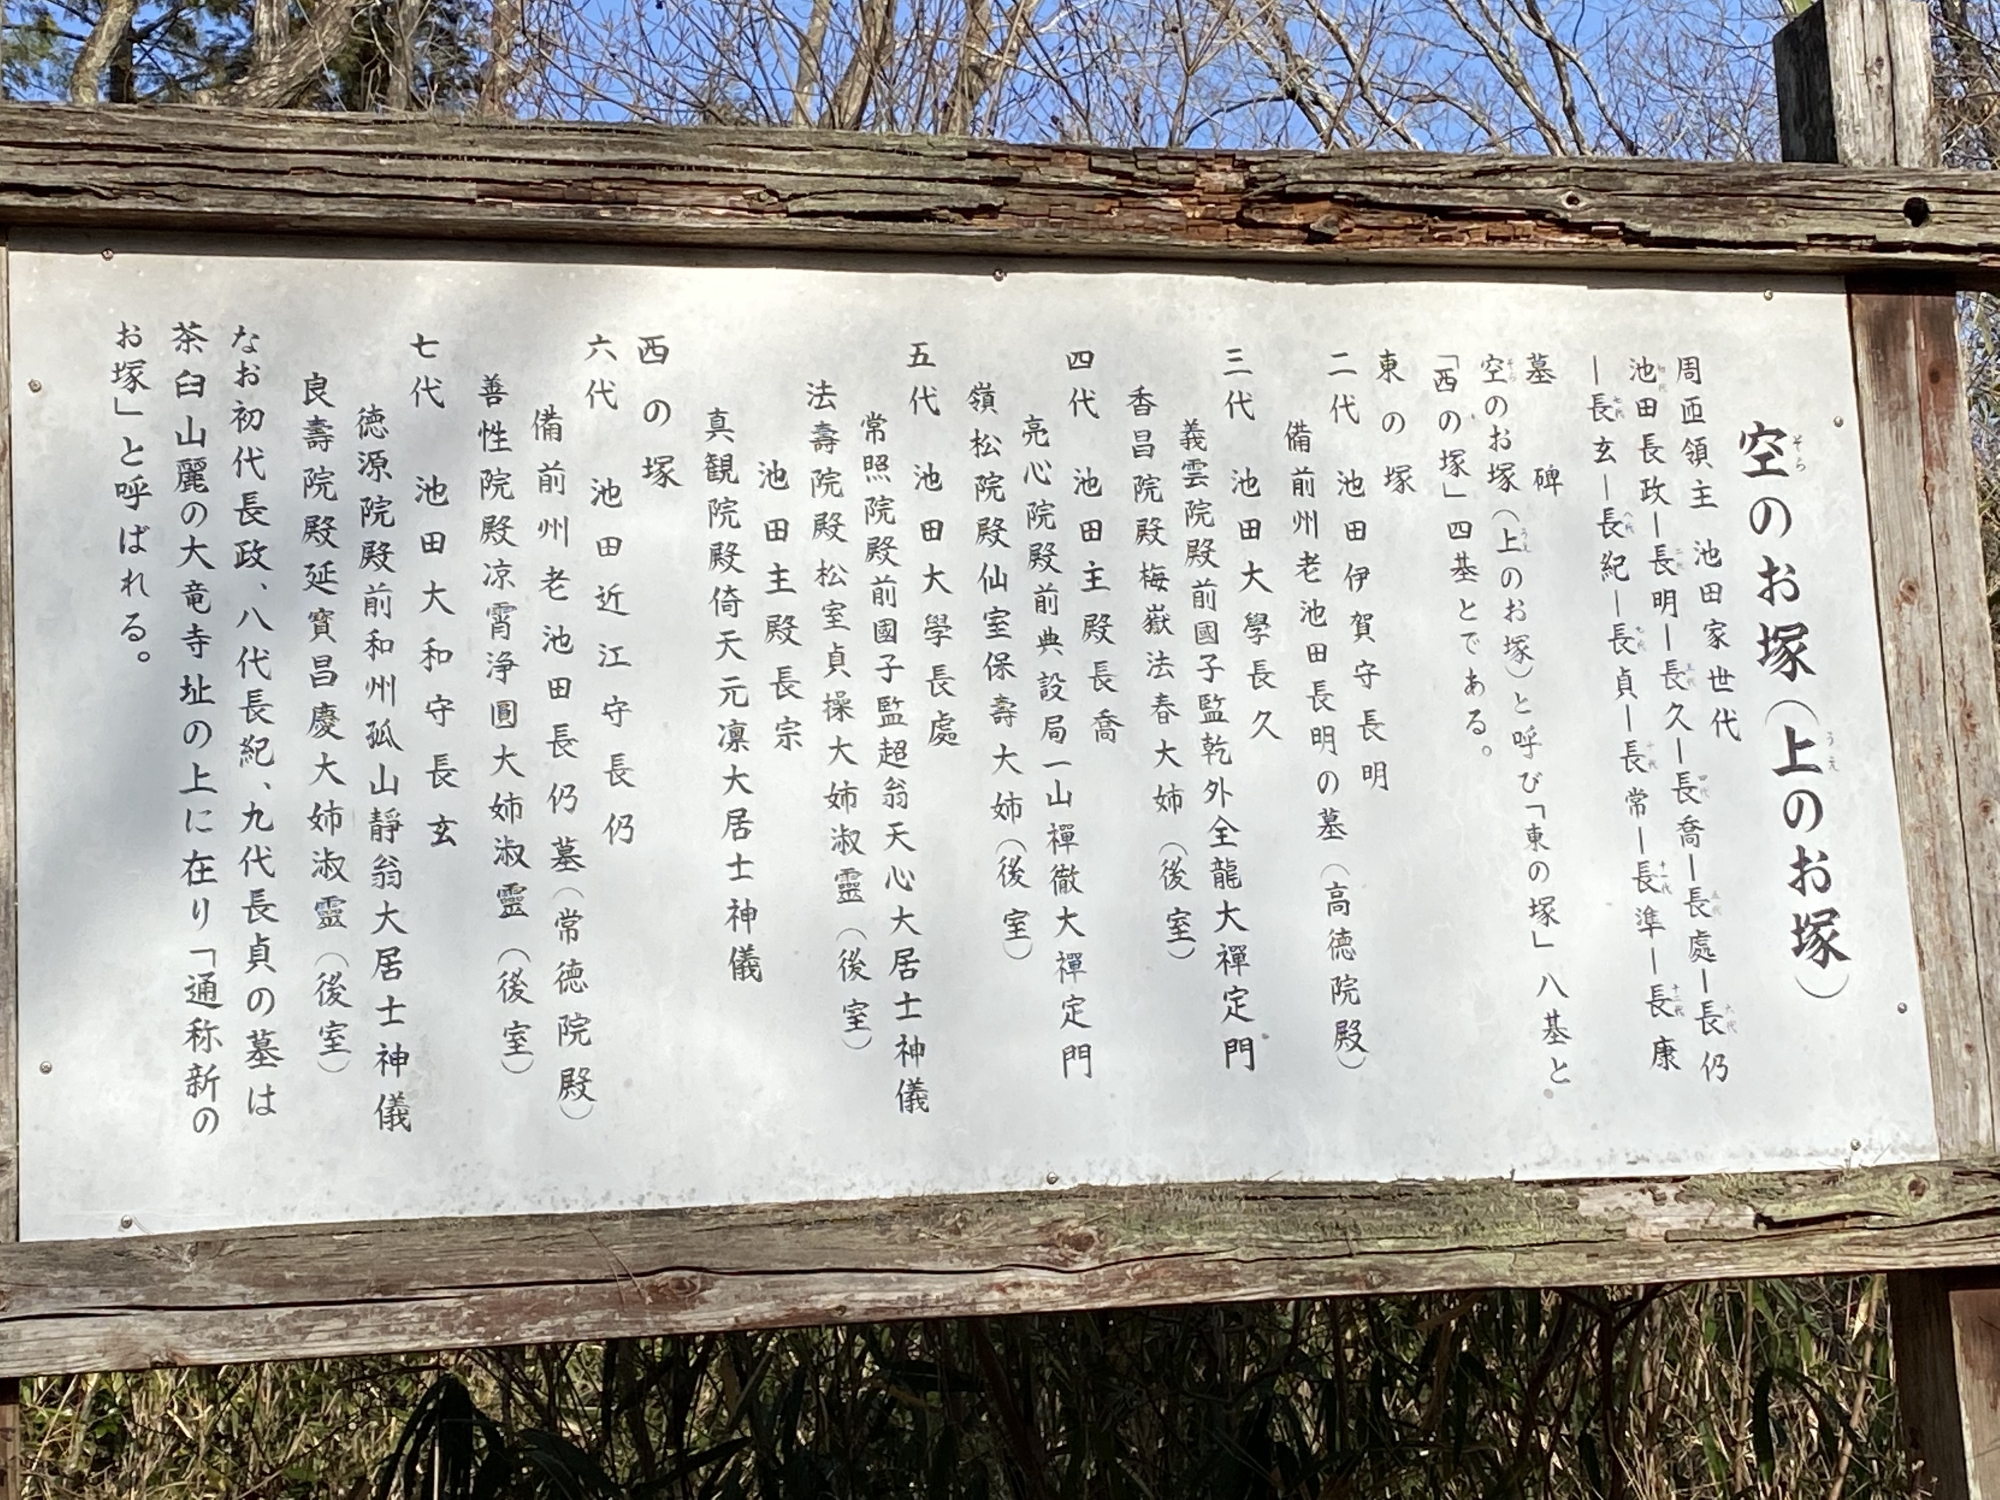 空のお塚（上のお塚）
周匝領主　池田家世代
池田長政―長明―長久―長喬―長處―長仍
―長玄―長紀―長貞―長常―長準―長康
墓　碑
空のお塚（上のお塚）と呼び「東の塚」八基と
「西の塚」四基とである。
東の塚
二代　池田伊賀守長明
備前州老池田長明の墓（高徳院殿）
三代　池田大學長久
義雲院殿前國子監乾外全龍大禪定門
香昌院殿梅嶽法春大姉（後室）
四代　池田主殿長喬
亮心院殿前典設局一山禪徹大禪定門
嶺松院殿仙室保壽大姉（後室）
五代　池田大學長處
常照院殿前國子監超翁天心大居士神儀
法壽院殿松室貞操大姉淑靈（後室）
池田主殿長宗
真観院殿倚天元凛大居士神儀
西の塚
六代　池田近江守長仍
備前州老池田長仍墓（常徳院殿）
善性院殿凉霄浄圓大姉淑靈（後室）
七代　池田大和守長玄
徳源院殿前和州孤山靜翁大居士神儀
良壽院殿延寳昌慶大姉淑靈（後室）
なお初代長政、八代長紀、九代長貞の墓は
茶臼山麗の大竜寺址の上に在り「通称新の
お塚」と呼ばれる。